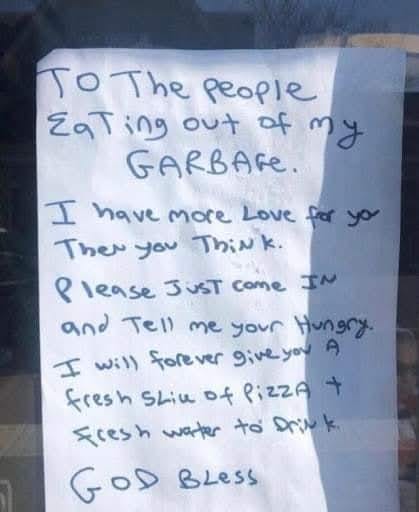 TO The people
EaTing out of my
GARBAGE.
I have more Love for yo
Then you Think.
Please JUST come IN
and Tell me your Hungry.
I will forever give you A
fresh Slice of Pizza +
fresh water to Drink.
GOD BLess